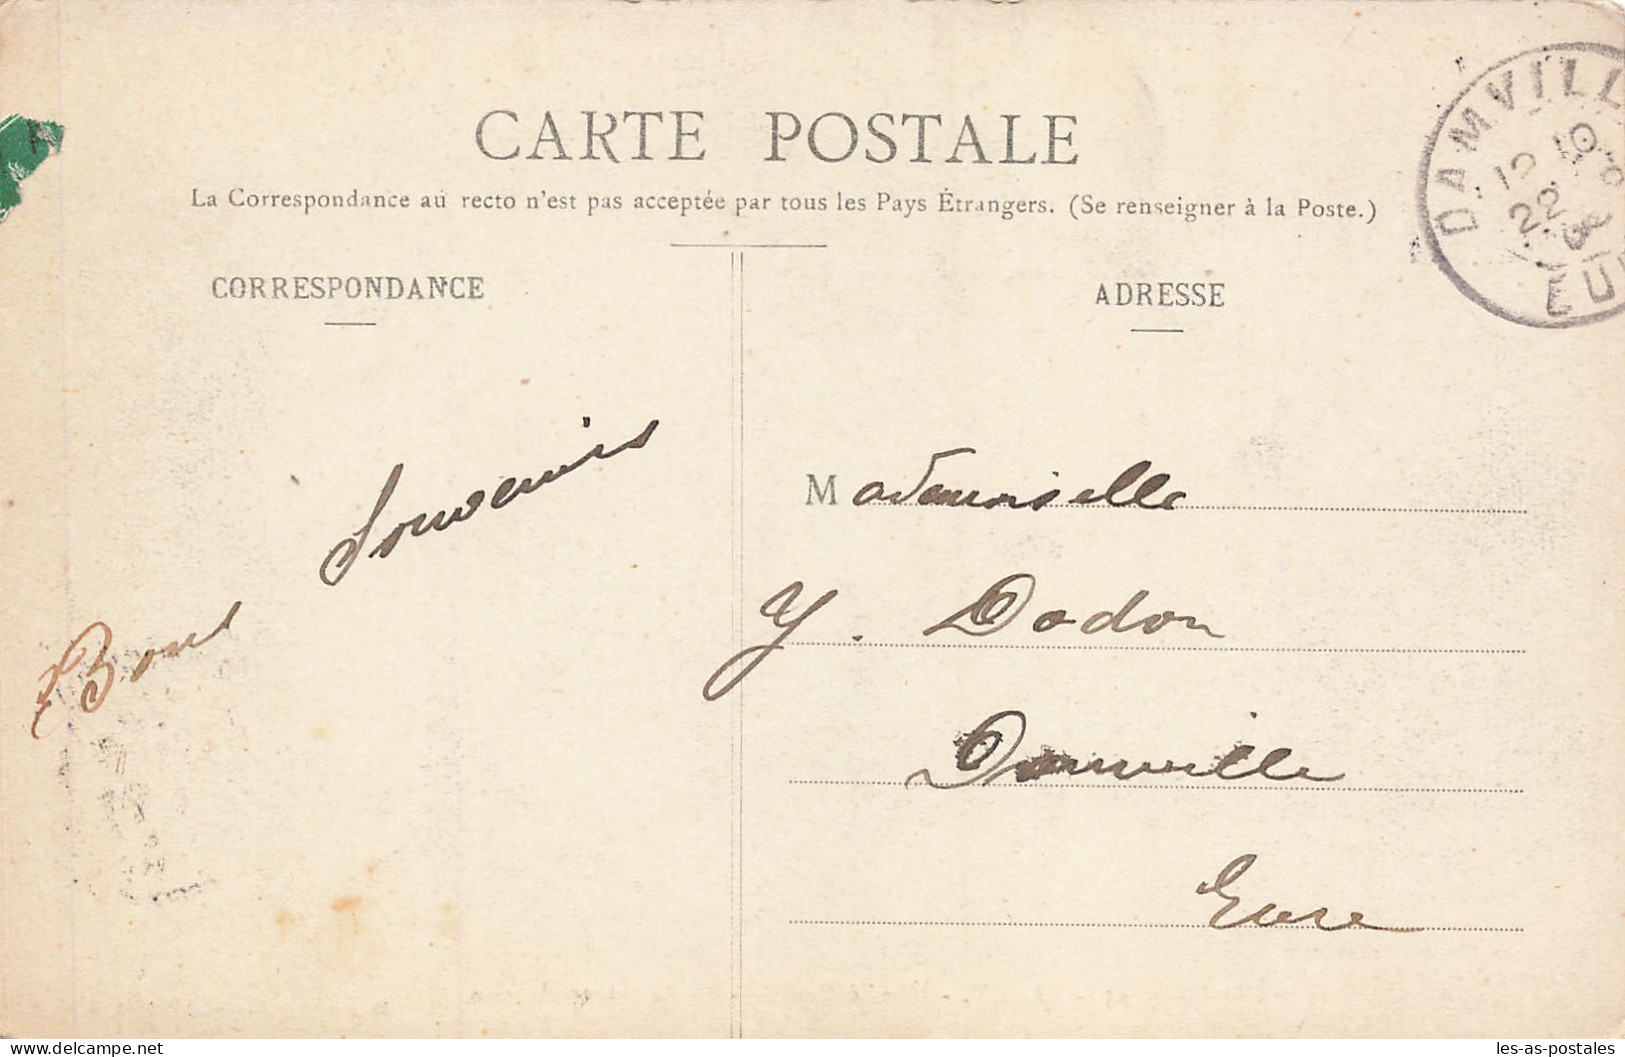 CARTE POSTALE
La Correspondance au recto n'est pas acceptée par tous les Pays Étrangers. (Se renseigner à la Poste.)
CORRESPONDANCE
ADRESSE
DAMVILL
12 10
22
EU
Bons Souvenirs
Mademoiselle
Y. Dodon
Damville
Eure
delcampe.net
les-as-postales